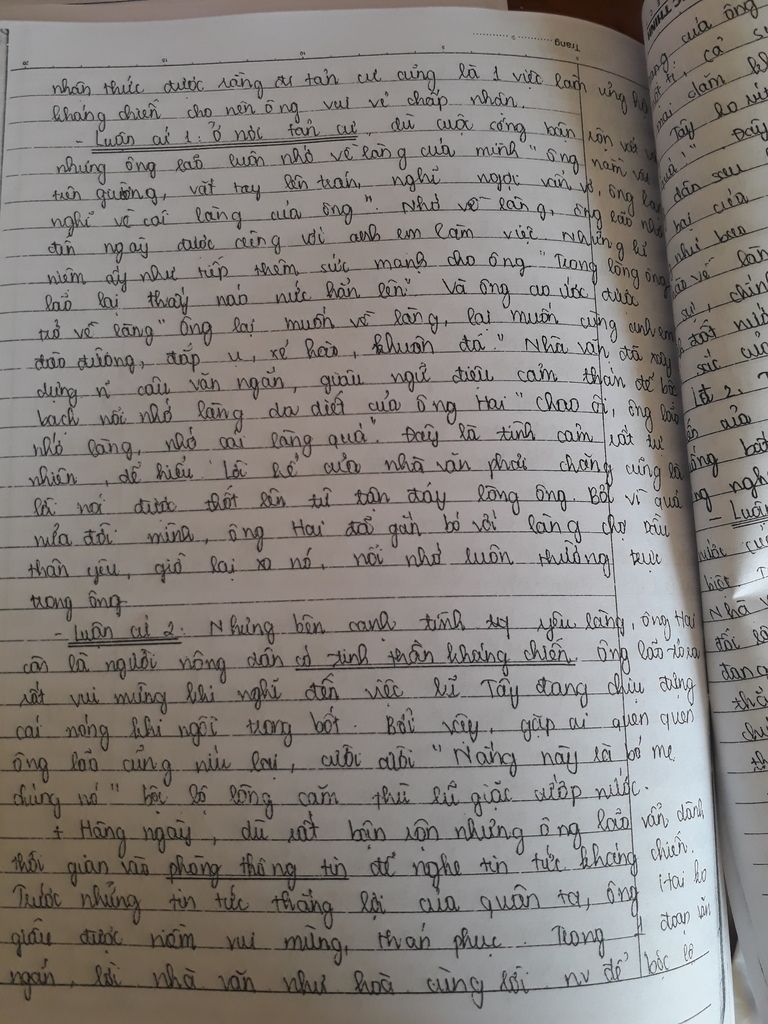 Trang
nhân thức được rằng đi tản cư cũng là 1 việc làm ủng hộ
kháng chiến cho nên ông vui vẻ chấp nhân.
- Luận cứ 1: Ở nơi tản cư, dù cuộc sống bận rộn vất vả
nhưng ông lão luôn nhớ về làng của mình "ông nằm vật
trên giường, vắt tay lên trán, nghĩ ngợi vẩn vơ, ông lại
nghĩ về cái làng của ông". Nhớ về làng, ông lão nhớ
đến ngày được cùng với anh em làm việc. Những kỉ
niệm ấy như tiếp thêm sức mạnh cho ông "Trong lòng ông
lão lại thấy náo nức hẳn lên". Và ông ao ước được
trở về làng "ông lại muốn về làng, lại muốn cùng anh em
đào đường, đắp ụ, xẻ hào, khuân đá." Nhà văn đã xây
dựng n~ câu văn ngắn, giàu ngữ điệu cảm thán để bộc
bạch nỗi nhớ làng da diết của ông Hai "Chao ôi, ông lão
nhớ làng, nhớ cái làng quá". Đây là tình cảm rất tự
nhiên, dễ hiểu. Lời kể của nhà văn phải chăng cũng là
lời nói được thốt lên từ tận đáy lòng ông. Bởi vì quá
nửa đời mình, ông Hai đã gắn bó với làng chợ Dầu
thân yêu, giờ lại xa nó, nỗi nhớ luôn thường trực
trong ông.
- Luận cứ 2: Nhưng bên cạnh tình yêu làng, ông Hai
còn là người nông dân có tinh thần kháng chiến. Ông lão tỏ ra
rất vui mừng khi nghĩ đến việc lũ Tây đang chịu đựng
cái nóng khi ngồi trong bốt. Bởi vậy, gặp ai quen quen
ông lão cũng níu lại, cười cười "Nắng này là bỏ mẹ
chúng nó" bộc lộ lòng căm thù lũ giặc cướp nước.
+ Hàng ngày, dù rất bận rộn nhưng ông lão vẫn dành
thời gian vào phòng thông tin để nghe tin tức kháng chiến.
Trước những tin tức thắng lợi của quân ta, ông Hai ko
giấu được niềm vui mừng, thán phục. Trong 1 đoạn văn
ngắn, lời nhà văn như hoà cùng lời nv để bộc lộ